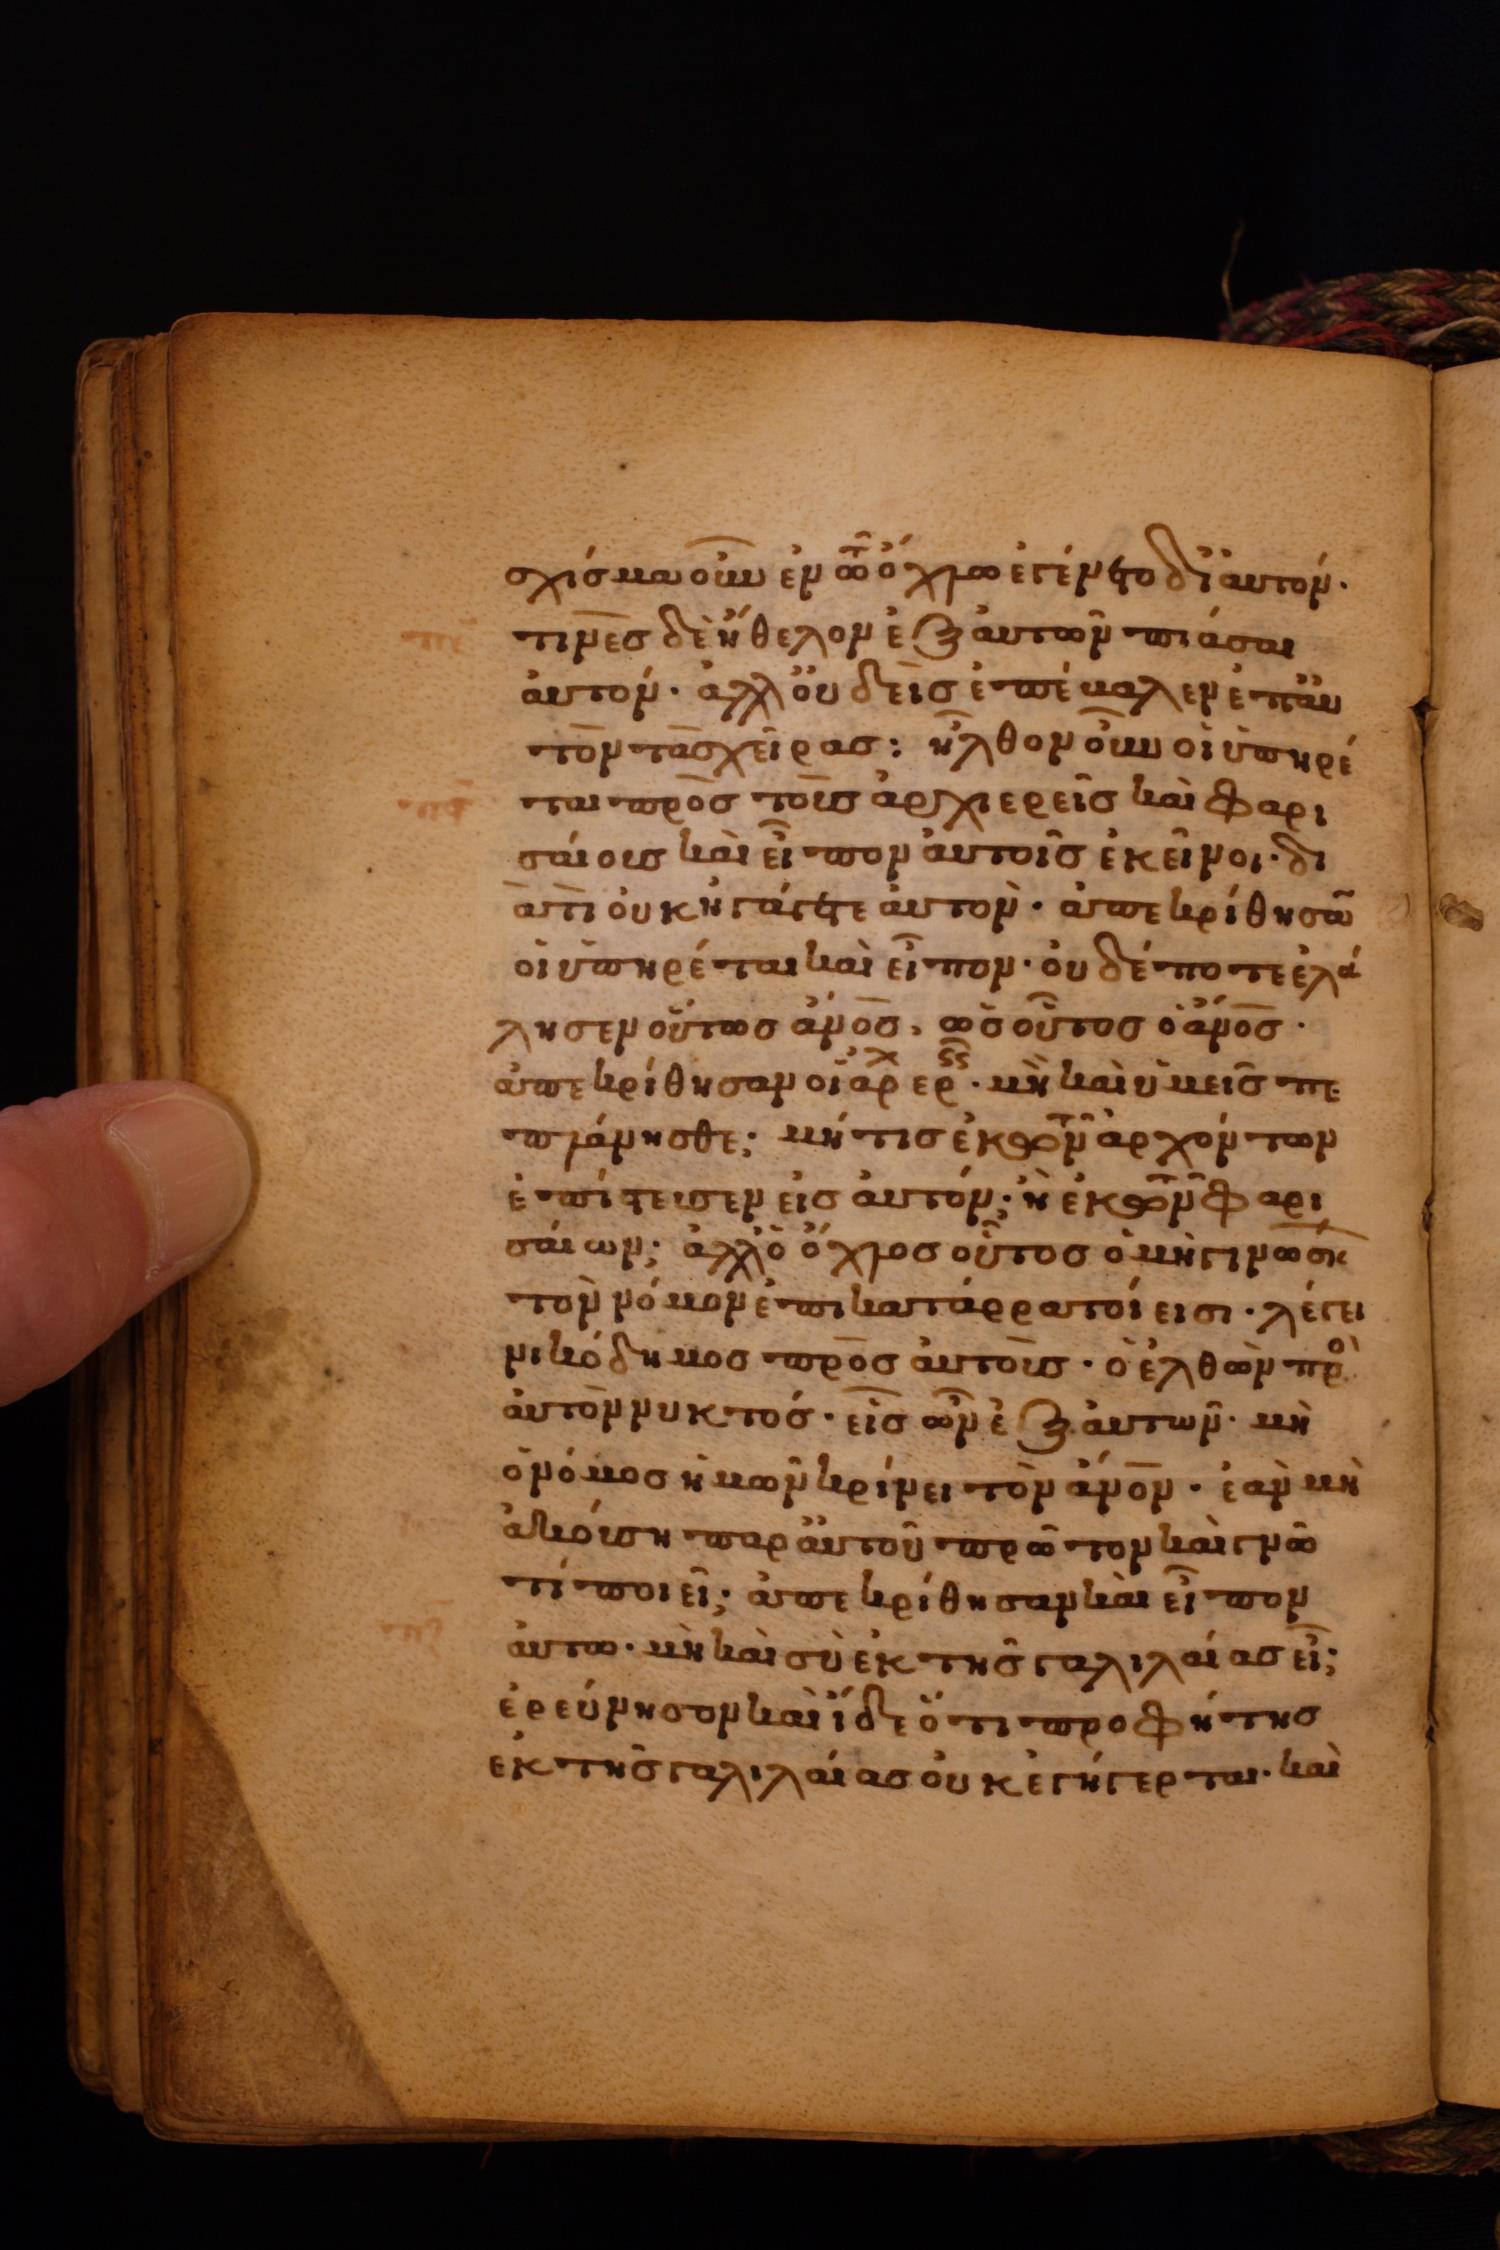 σχίσμα οὖν ἐν τῶ ὄχλω ἐγένετο δι ἀυτόν·
τινὲς δὲ ἤθελον ἐξ ἀυτῶν πιάσαι
ἀυτόν· ἀλλ ὀυδεὶς ἐπέβαλεν ἐπ ἀυ
τὸν τὰς χεῖρας: ἦλθον οὖν οἱ ὑπηρέ
ται πρὸς τοὺς ἀρχιερεῖς καὶ φαρι
σαίους καὶ εἶπον ἀυτοῖς ἐκεῖνοι· δι
ὰτὶ ὀυκ ἠγάγετε ἀυτὸν· ἀπεκρίθησα̅
οἱ ὑπηρέται καὶ εἶπον· ὀυδέποτε ἐλά
λησεν οὕτως ἄν̅ο̅ς̅, ὡς οὗτος ὁ ἄν̅ο̅ς̅·
ἀπεκρίθησαν οἱ ἀρχ ερ· μὴ καὶ ὑμεῖς πε
πλάνησθε; μήτις ἐκ τῶν ἀρχόντων
ἐπίστευσεν εἰς ἀυτόν; ἢ ἐκ τῶν φαρι
σαίων; ἀλλ ὁ ὄχλος οὗτος ὁ μὴ γινώσκ
τὸν νόμον ἐπικατάρρατοί εισι· λέγει
νικόδημος πρὸς ἀυτοὺς· ὁ ἐλθὼν πρὸ
ἀυτὸν νυκτός· εἷς ὢν ἐξ ἀυτῶν· μὴ
ὁ νόμος ἡμῶν κρίνει τὸν ἄν̅ο̅ν̅· ἐὰν μὴ
ἀκούση παρ ἀυτοῦ πρῶτον καὶ γνῶ
τί ποιεῖ; ἀπεκρίθησαν καὶ εἶπον
ἀυτω· μὴ καὶ σὺ ἐκ τῆς γαλιλαίας εἶ;
ἐρεύνησον καὶ ἴδε ὅτι προφήτης
ἐκ τῆς γαλιλαίας ὀυκ ἐγήγερται· καὶ